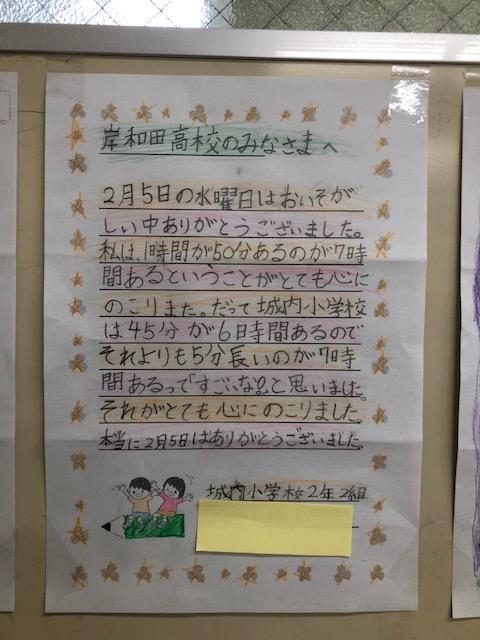 岸和田高校のみなさまへ
2月5日の水曜日はおいそが
しい中ありがとうございました。
私は、1時間が50分あるのが7時
間あるということがとても心に
のこりまた。だって城内小学校
は45分が6日時間あるので
それよりも5分長いのが7時
間あるって「すごいな。」と思いました。
それがとても心にのこりました。
本当に2月5日はありがとうございました。
城内小学校2年2組